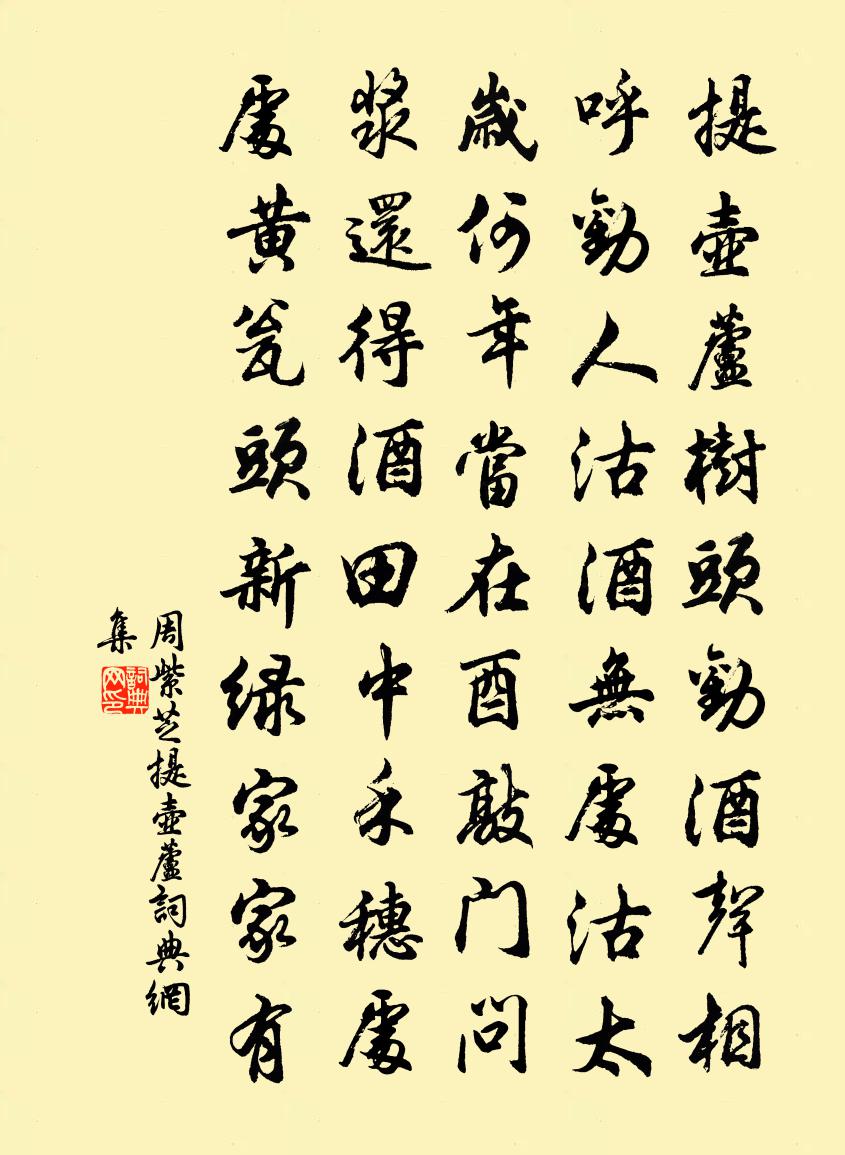 提壺蘆樹頭勸酒聲相
呼勸人沽酒無處沽太
歲何年當在酉敲门问
漿還得酒田中禾穗處
處黄瓮頭新緑家家有
周紫芝提壺蘆詞典網
集
詞典網印